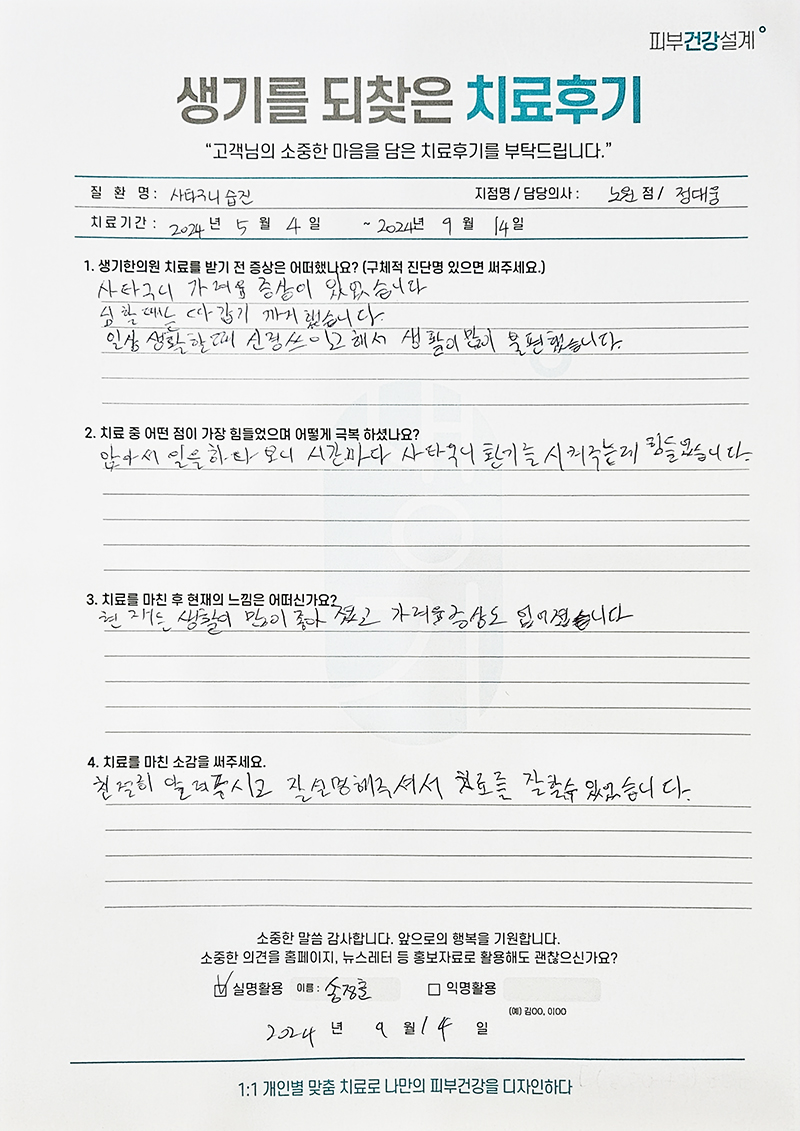 피부건강설계
생기를 되찾은 치료후기
“고객님의 소중한 마음을 담은 치료후기를 부탁드립니다.”
질 환 명 : 사타구니 습진 지점명 / 담당의사 : 노원 점 / 정대웅
치료기간 : 2024 년 5 월 4 일 ~ 2024년 9 월 14 일
1. 생기한의원 치료를 받기 전 증상은 어떠했나요? (구체적 진단명 있으면 써주세요.)
사타구니 가려움 증상이 있었습니다
심할때는 따갑기 까지했습니다.
일상생활할때 신경쓰이고 해서 생활이 많이 불편했습니다.
2. 치료 중 어떤 점이 가장 힘들었으며 어떻게 극복 하셨나요?
앉아서 일을하다 보니 시간마다 사타구니 환기를 시켜주는데 힘들었습니다.
3. 치료를 마친 후 현재의 느낌은 어떠신가요?
현재는 생활이 많이 좋아 졌고 가려움증상도 없어졌습니다
4. 치료를 마친 소감을 써주세요.
친절히 알려주시고 잘설명해주셔서 치료를 잘할수 있었습니다.
소중한 말씀 감사합니다. 앞으로의 행복을 기원합니다.
소중한 의견을 홈페이지, 뉴스레터 등 홍보자료로 활용해도 괜찮으신가요?
실명활용 이름 : 송정훈 익명활용
(예) 김OO, 이OO
2024 년 9 월 14 일
1:1 개인별 맞춤 치료로 나만의 피부건강을 디자인하다